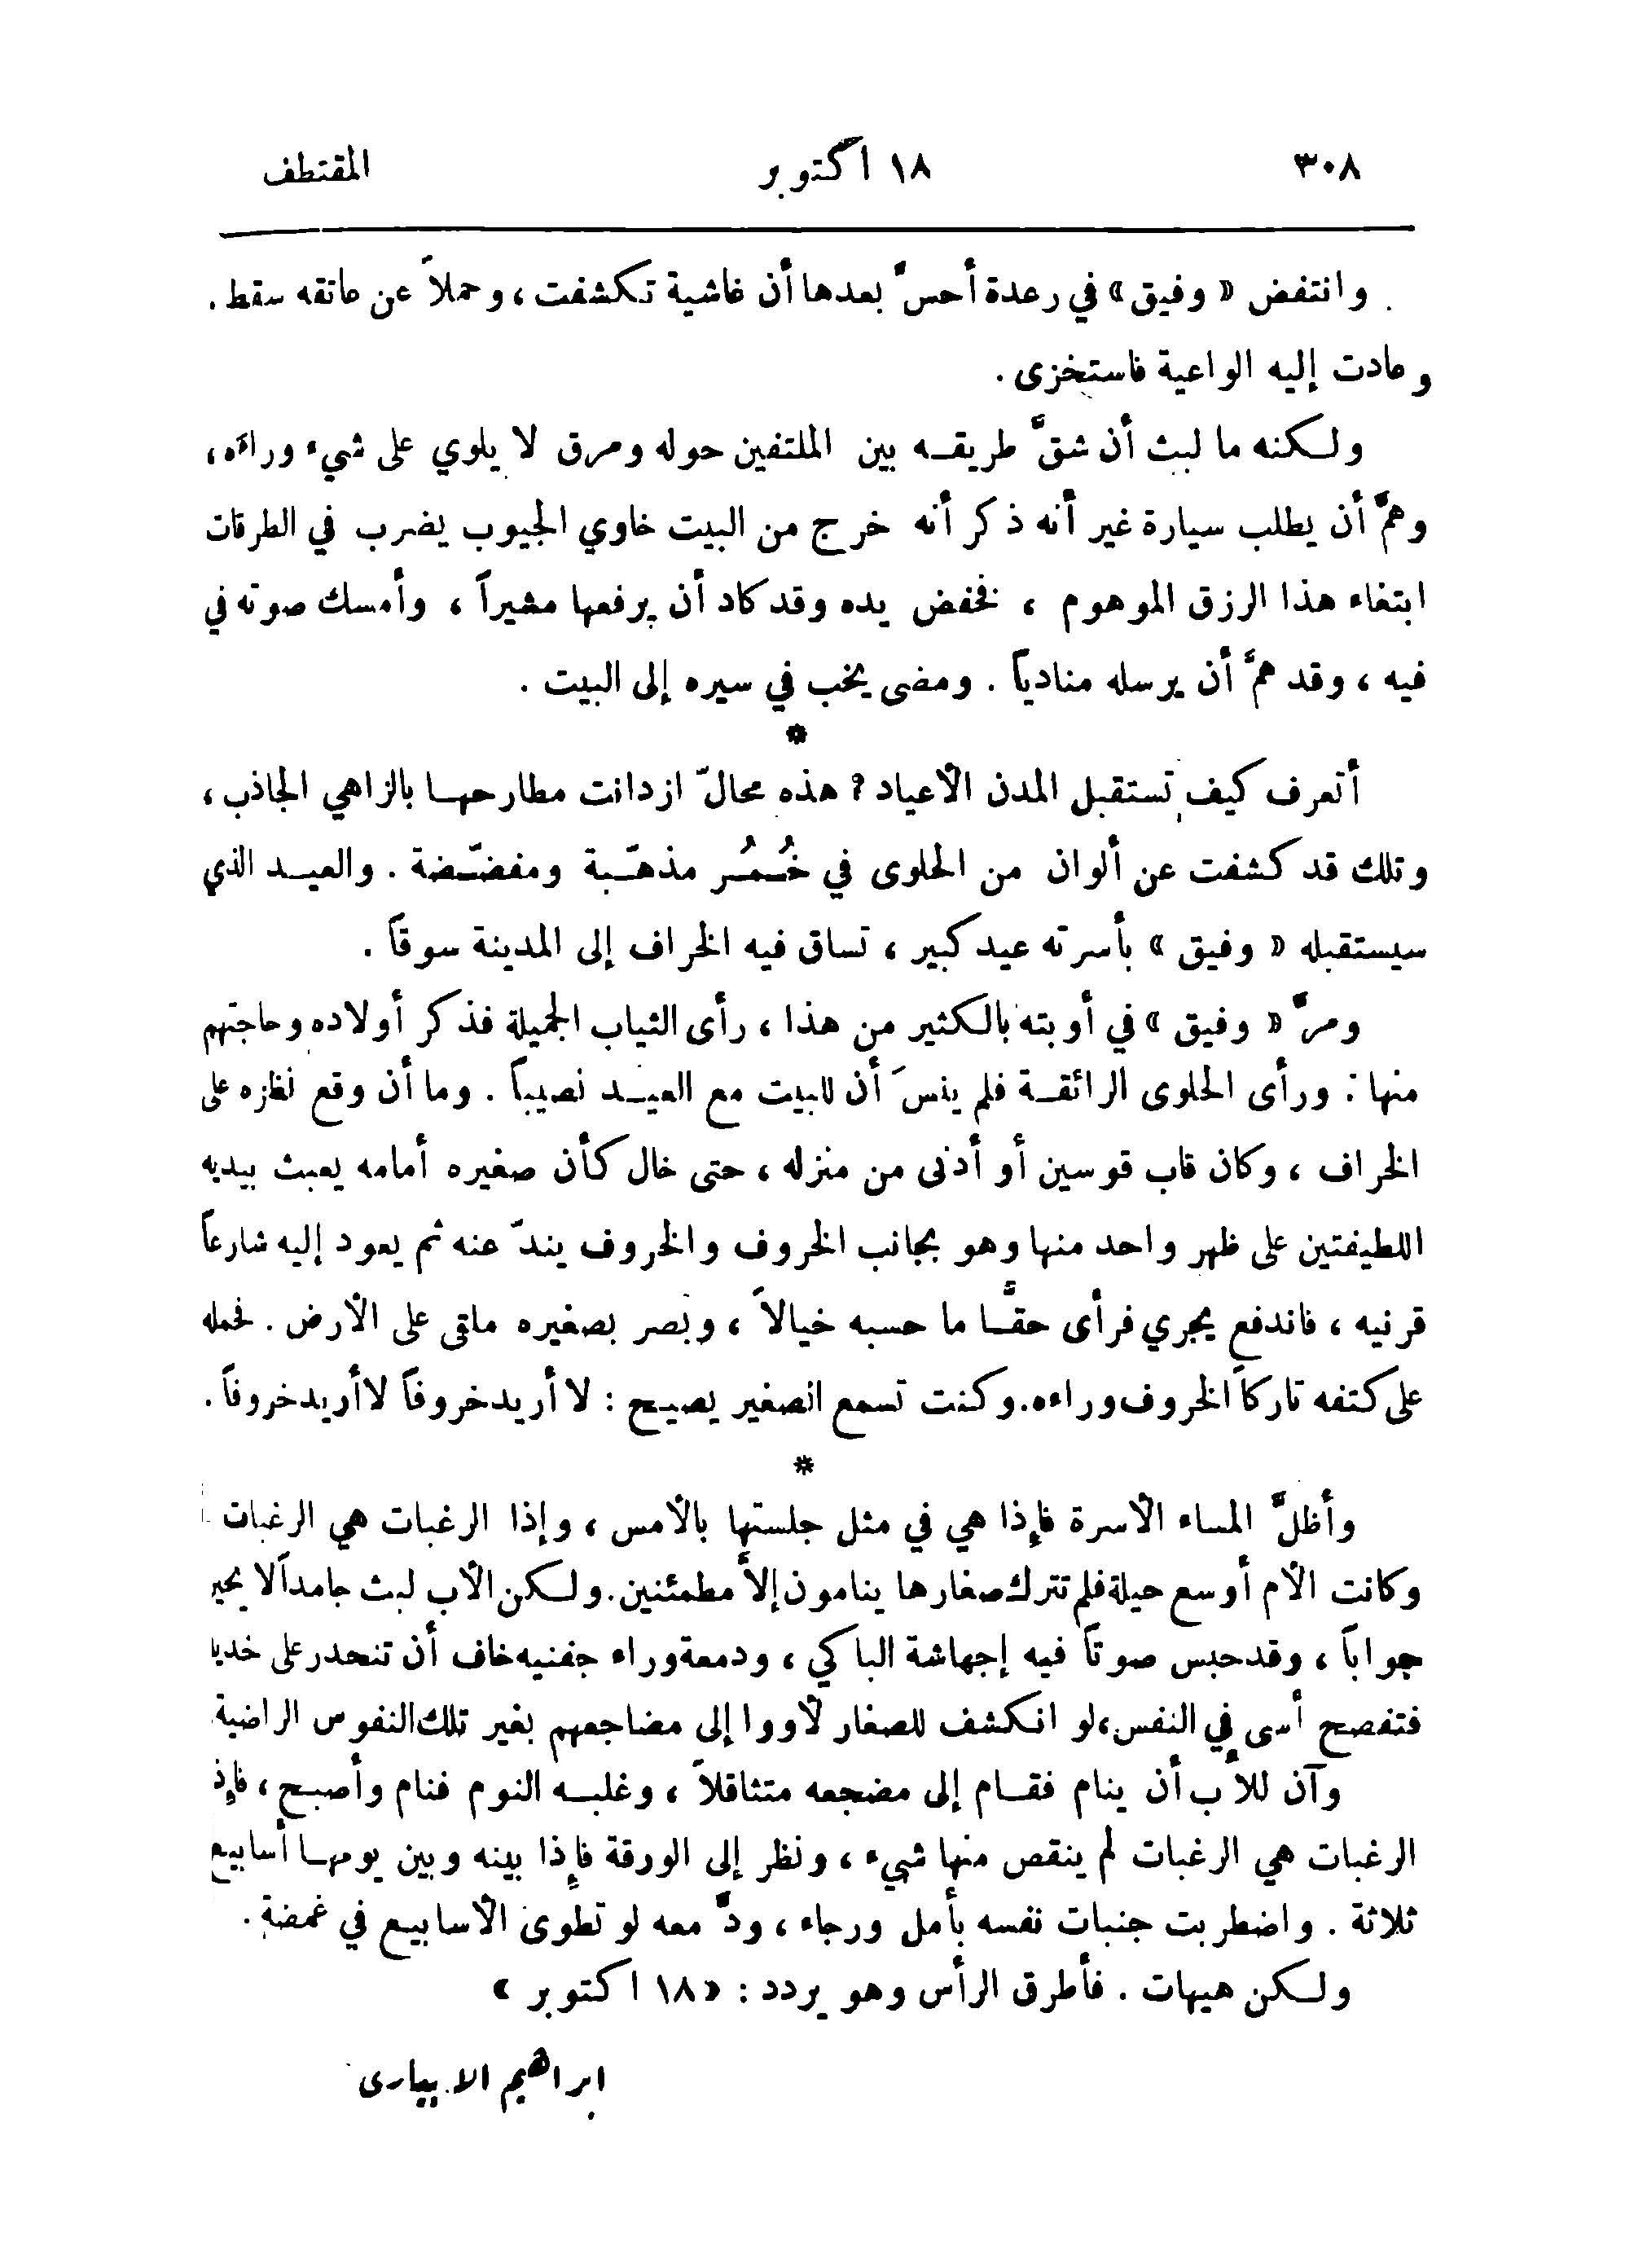 ٣٠٨ ١٨ اكتوبر المقتطف
وانتفض « وفيق » في رعدة أحسَّ بعدها أن غاشية تكشفت ، وحملاً عن عاتقه سقط .
وعادت إليه الواعية فاستخزى .
ولكنه ما لبث أن شقَّ طريقه بين الملتفين حوله ومرق لا يلوي على شيء وراءَه ،
وهمَّ أن يطلب سيارة غير أنه ذكر أنه خرج من البيت خاوي الجيوب يضرب في الطرقات
ابتغاء هذا الرزق الموهوم ، فخفض يده وقد كاد أن يرفعها مشيراً ، وأمسك صوته في
فيه ، وقد همَّ أن يرسله منادياً . ومضى يخب في سيره إلى البيت .
*
أتعرف كيف تستقبل المدن الأعياد ؟ هذه محالّ ازدانت مطارحها بالزاهي الجاذب ،
وتلك قد كشفت عن ألوان من الحلوى في خُمُر مذهّبة ومفضّضة . والعيد الذي
سيستقبله « وفيق » بأسرته عيد كبير ، تساق فيه الخراف إلى المدينة سوقاً .
ومرَّ « وفيق » في أوبته بالكثير من هذا ، رأى الثياب الجميلة فذكر أولاده وحاجتهم
منها : ورأى الحلوى الرائقة فلم ينسَ أن للبيت مع العيد نصيباً . وما أن وقع نظره على
الخراف ، وكان قاب قوسين أو أدنى من منزله ، حتى خال كأن صغيره أمامه يعبث بيديه
اللطيفتين على ظهر واحد منها وهو بجانب الخروف والخروف يندّ عنه ثم يعود إليه شارعاً
قرنيه ، فاندفع يجري فرأى حقًّا ما حسبه خيالاً ، وبصر بصغيره ملقى على الأرض . فحمله
على كتفه تاركاً الخروف وراءه . وكنت تسمع الصغير يصيح : لا أريد خروفاً لا أريد خروفاً .
*
وأظلَّ المساء الأسرة فإذا هي في مثل جلستها بالأمس ، وإذا الرغبات هي الرغبات
وكانت الأم أوسع حيلة فلم تترك صغارها ينامون إلاَّ مطمئنين . ولكن الأب لبث جامداً لا يحير
جواباً ، وقد حبس صوتاً فيه إجهاشة الباكي ، ودمعة وراء جفنيه خاف أن تنحدر على خديه
فتفصح أسى في النفس ، لو انكشف للصغار لأووا إلى مضاجعهم بغير تلك النفوس الراضية
وآن للأب أن ينام فقام إلى مضجعه متثاقلاً ، وغلبه النوم فنام وأصبح ، فإذ
الرغبات هي الرغبات لم ينقص منها شيء ، ونظر إلى الورقة فإذا بينه وبين يومها أسابيع
ثلاثة . واضطربت جنبات نفسه بأمل ورجاء ، ودَّ معه لو تطوى الأسابيع في غمضة .
ولكن هيهات . فأطرق الرأس وهو يردد : « ١٨ اكتوبر »
ابراهيم الابيارى